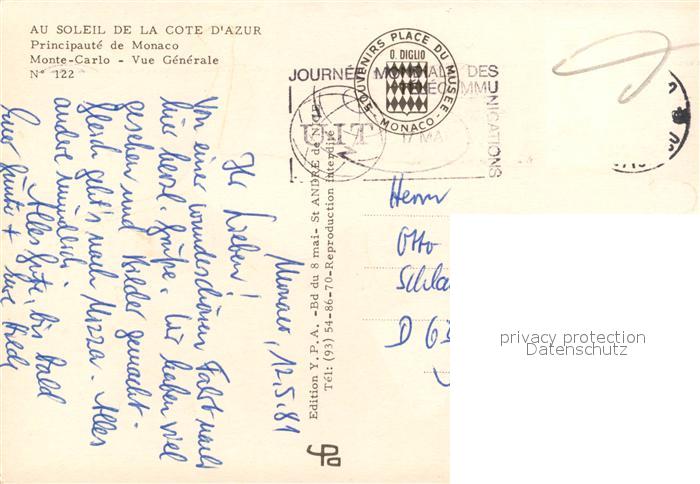 AU SOLEIL DE LA COTE D'AZUR
Principauté de Monaco
Monte-Carlo - Vue Générale
N° 122
Monaco, 12.5.81
Ihr Lieben!
Von einer wunderschönen Fahrt nach
hier herzl. Grüße. Wir haben viel
gesehen und Bilder gemacht.
Gleich geht's nach Nizza. Alles
andere mündlich.
Alles Gute, bis bald
Euer Günter + eure
Edition Y.P.A. -Bd du 8 mai- St ANDRÉ de
Tél: (93) 54-86-70-Reproduction interdite
SOUVENIRS PLACE DU MUSÉE
O. DIGLIO
- MONACO -
JOURNÉE MONDIALE DES
TÉLÉCOMMUNICATIONS
UIT
17 MAI
Herrn
Otto
D 63
privacy protection
Datenschutz